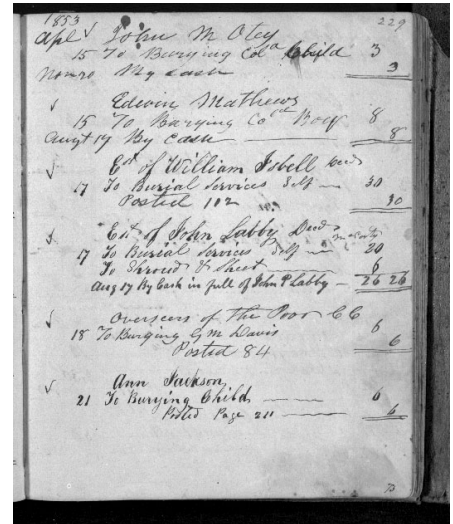 1853 229
Apl ✓ John M Otey
15 To Burying Cold Child 3
Nov 20 By Cash 3
✓ Edwin Mathews
15 To Burying Cold Boy 8
Augt 17 By Cash 8
✓ Est of William Isbell Decd
17 To Burial Services Self 30
Posted 112 30
✓ Est of John Labby Decd
17 To Burial Services Self 20
To Shroud & Sheet 6
Aug 17 By Cash in full of John P Labby 26 26
✓ Overseers of the Poor CC
18 To Burying G M Davis 6
Posted 84 6
✓ Ann Jackson
21 To Burying Child 6
Posted Page 211 6